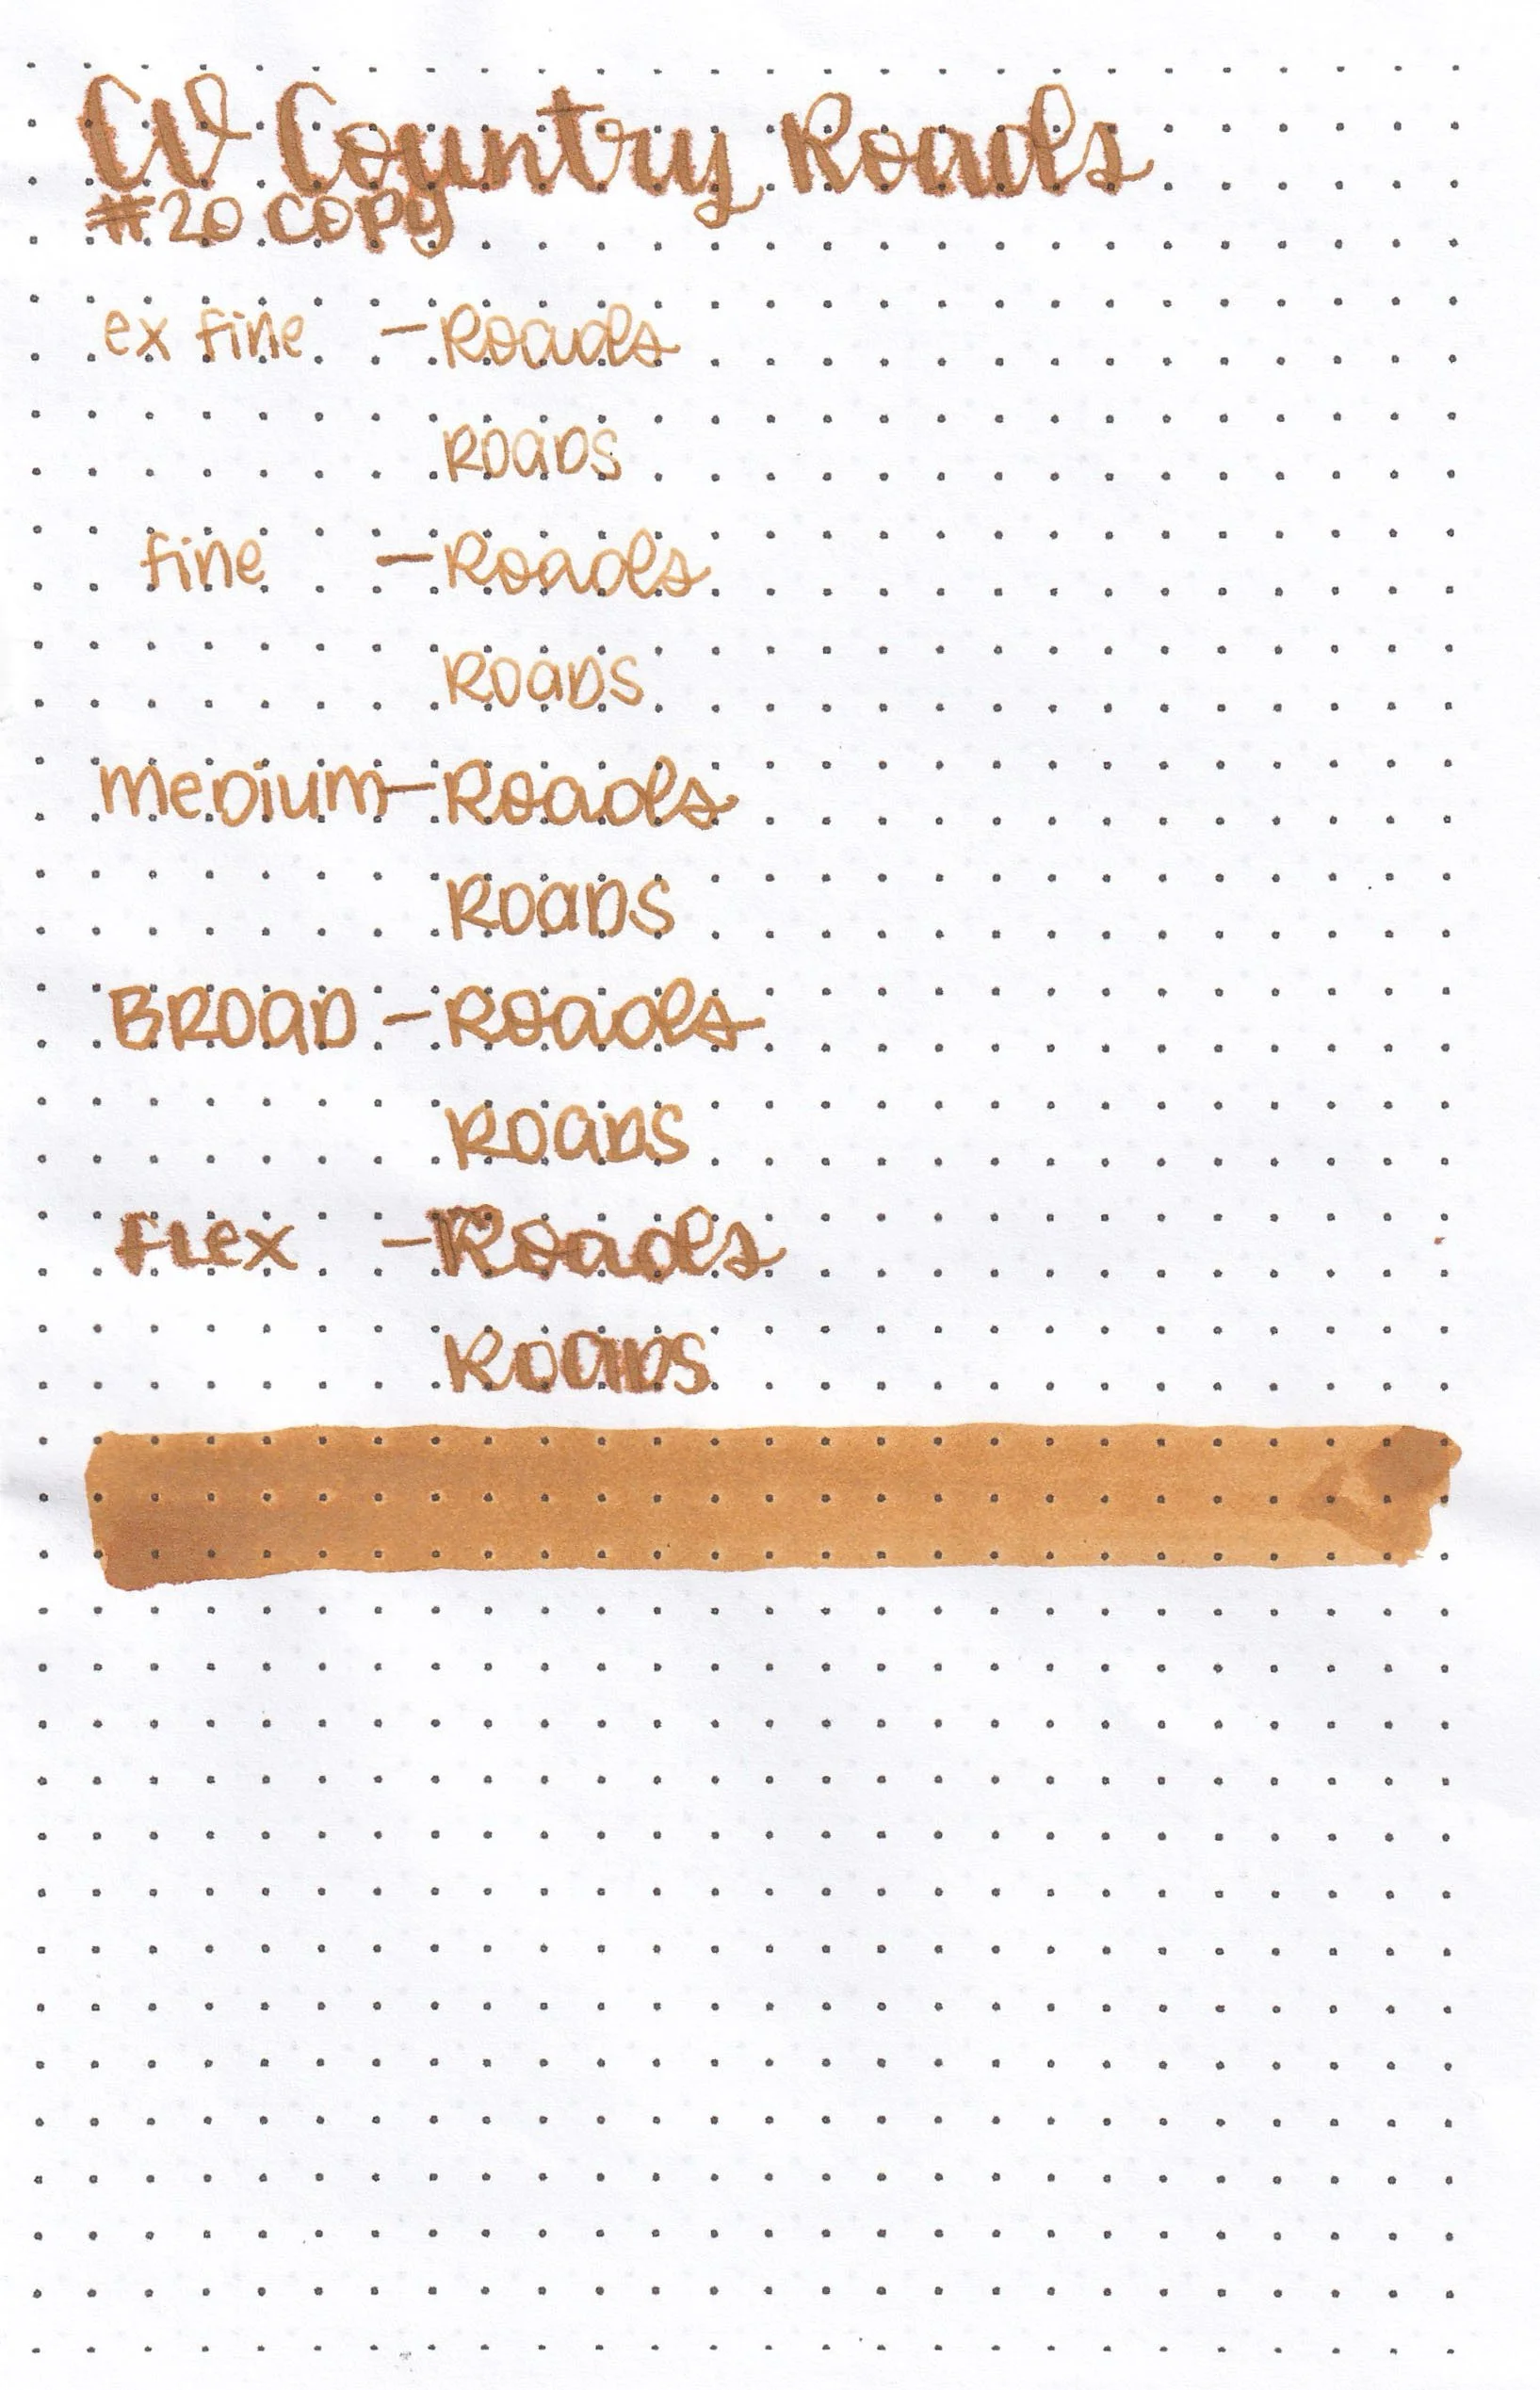 CV Country Roads
#20 COPY
ex fine - Roads
ROADS
fine - Roads
ROADS
meDium - Roads
ROADS
BROAD - Roads
ROADS
flex - Roads
ROADS